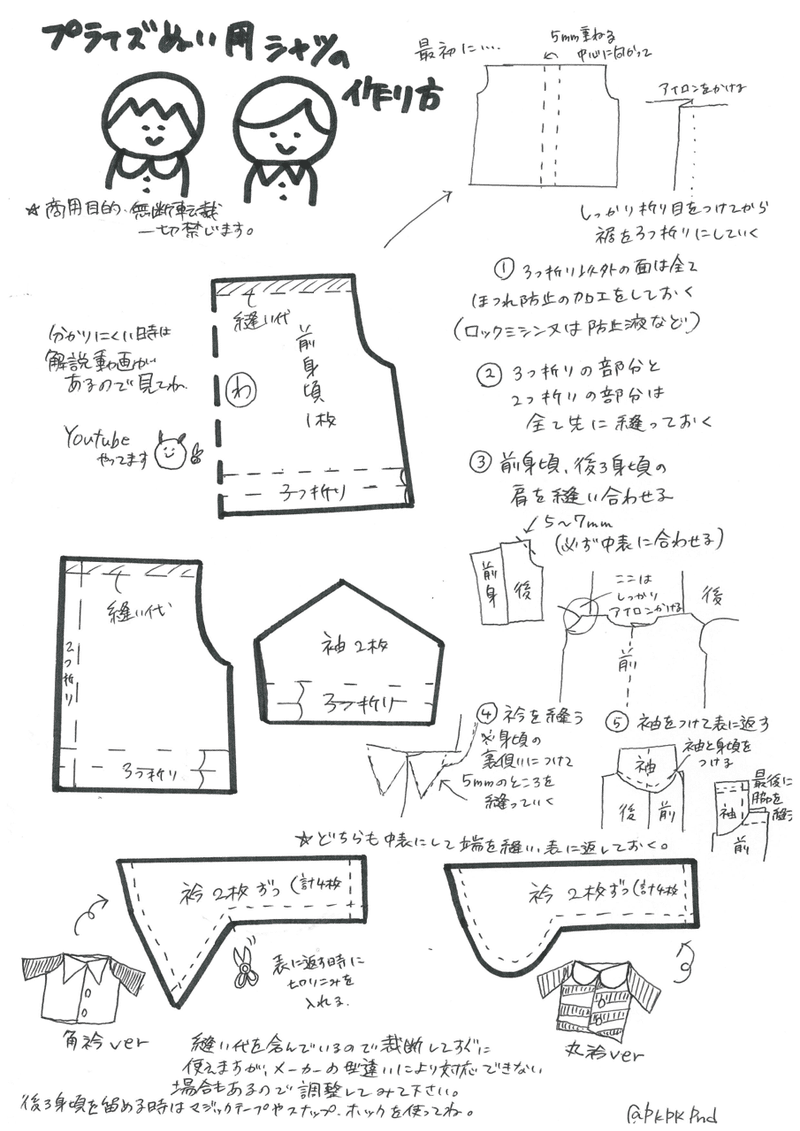 プライズぬい用シャツの
作り方
最初に‥‥
5mm重ねる
中心に向かって
アイロンをかける
しっかり折り目をつけてから
裾を3つ折りにしていく
☆商用目的・無断転載
一切禁じます。
縫い代
前身頃
1枚
わ
3つ折り
分かりにくい時は
解説動画が
あるので見てね
Youtube
やってます
① 3つ折り以外の面は全て
ほつれ防止の加工をしておく
(ロックミシン又は防止液など)
② 3つ折りの部分と
2つ折りの部分は
全て先に縫っておく
③ 前身頃、後ろ身頃の
肩を縫い合わせる
5〜7mm
(必ず中表に合わせる)
前身
後
ここは
しっかり
アイロンかける
後
前
縫い代
2つ折り
3つ折り
袖2枚
3つ折り
④ 衿を縫う
※身頃の
裏側につけて
5mmのところを
縫っていく
⑤ 袖をつけて表に返す
袖と身頃を
つける
袖
後
前
最後に
脇を
縫う
袖
前
☆どちらも中表にして端を縫い、表に返しておく。
衿2枚ずつ(計4枚
衿2枚ずつ(計4枚
表に返す時に
切りこみを
入れる
角衿ver
丸衿ver
縫い代を含んでいるので裁断してすぐに
使えますが、メーカーの型違いにより対応できない
場合もあるので調整してみて下さい。
後ろ身頃を留める時はマジックテープやスナップ、ホックを使ってね。
@pkpkpnd